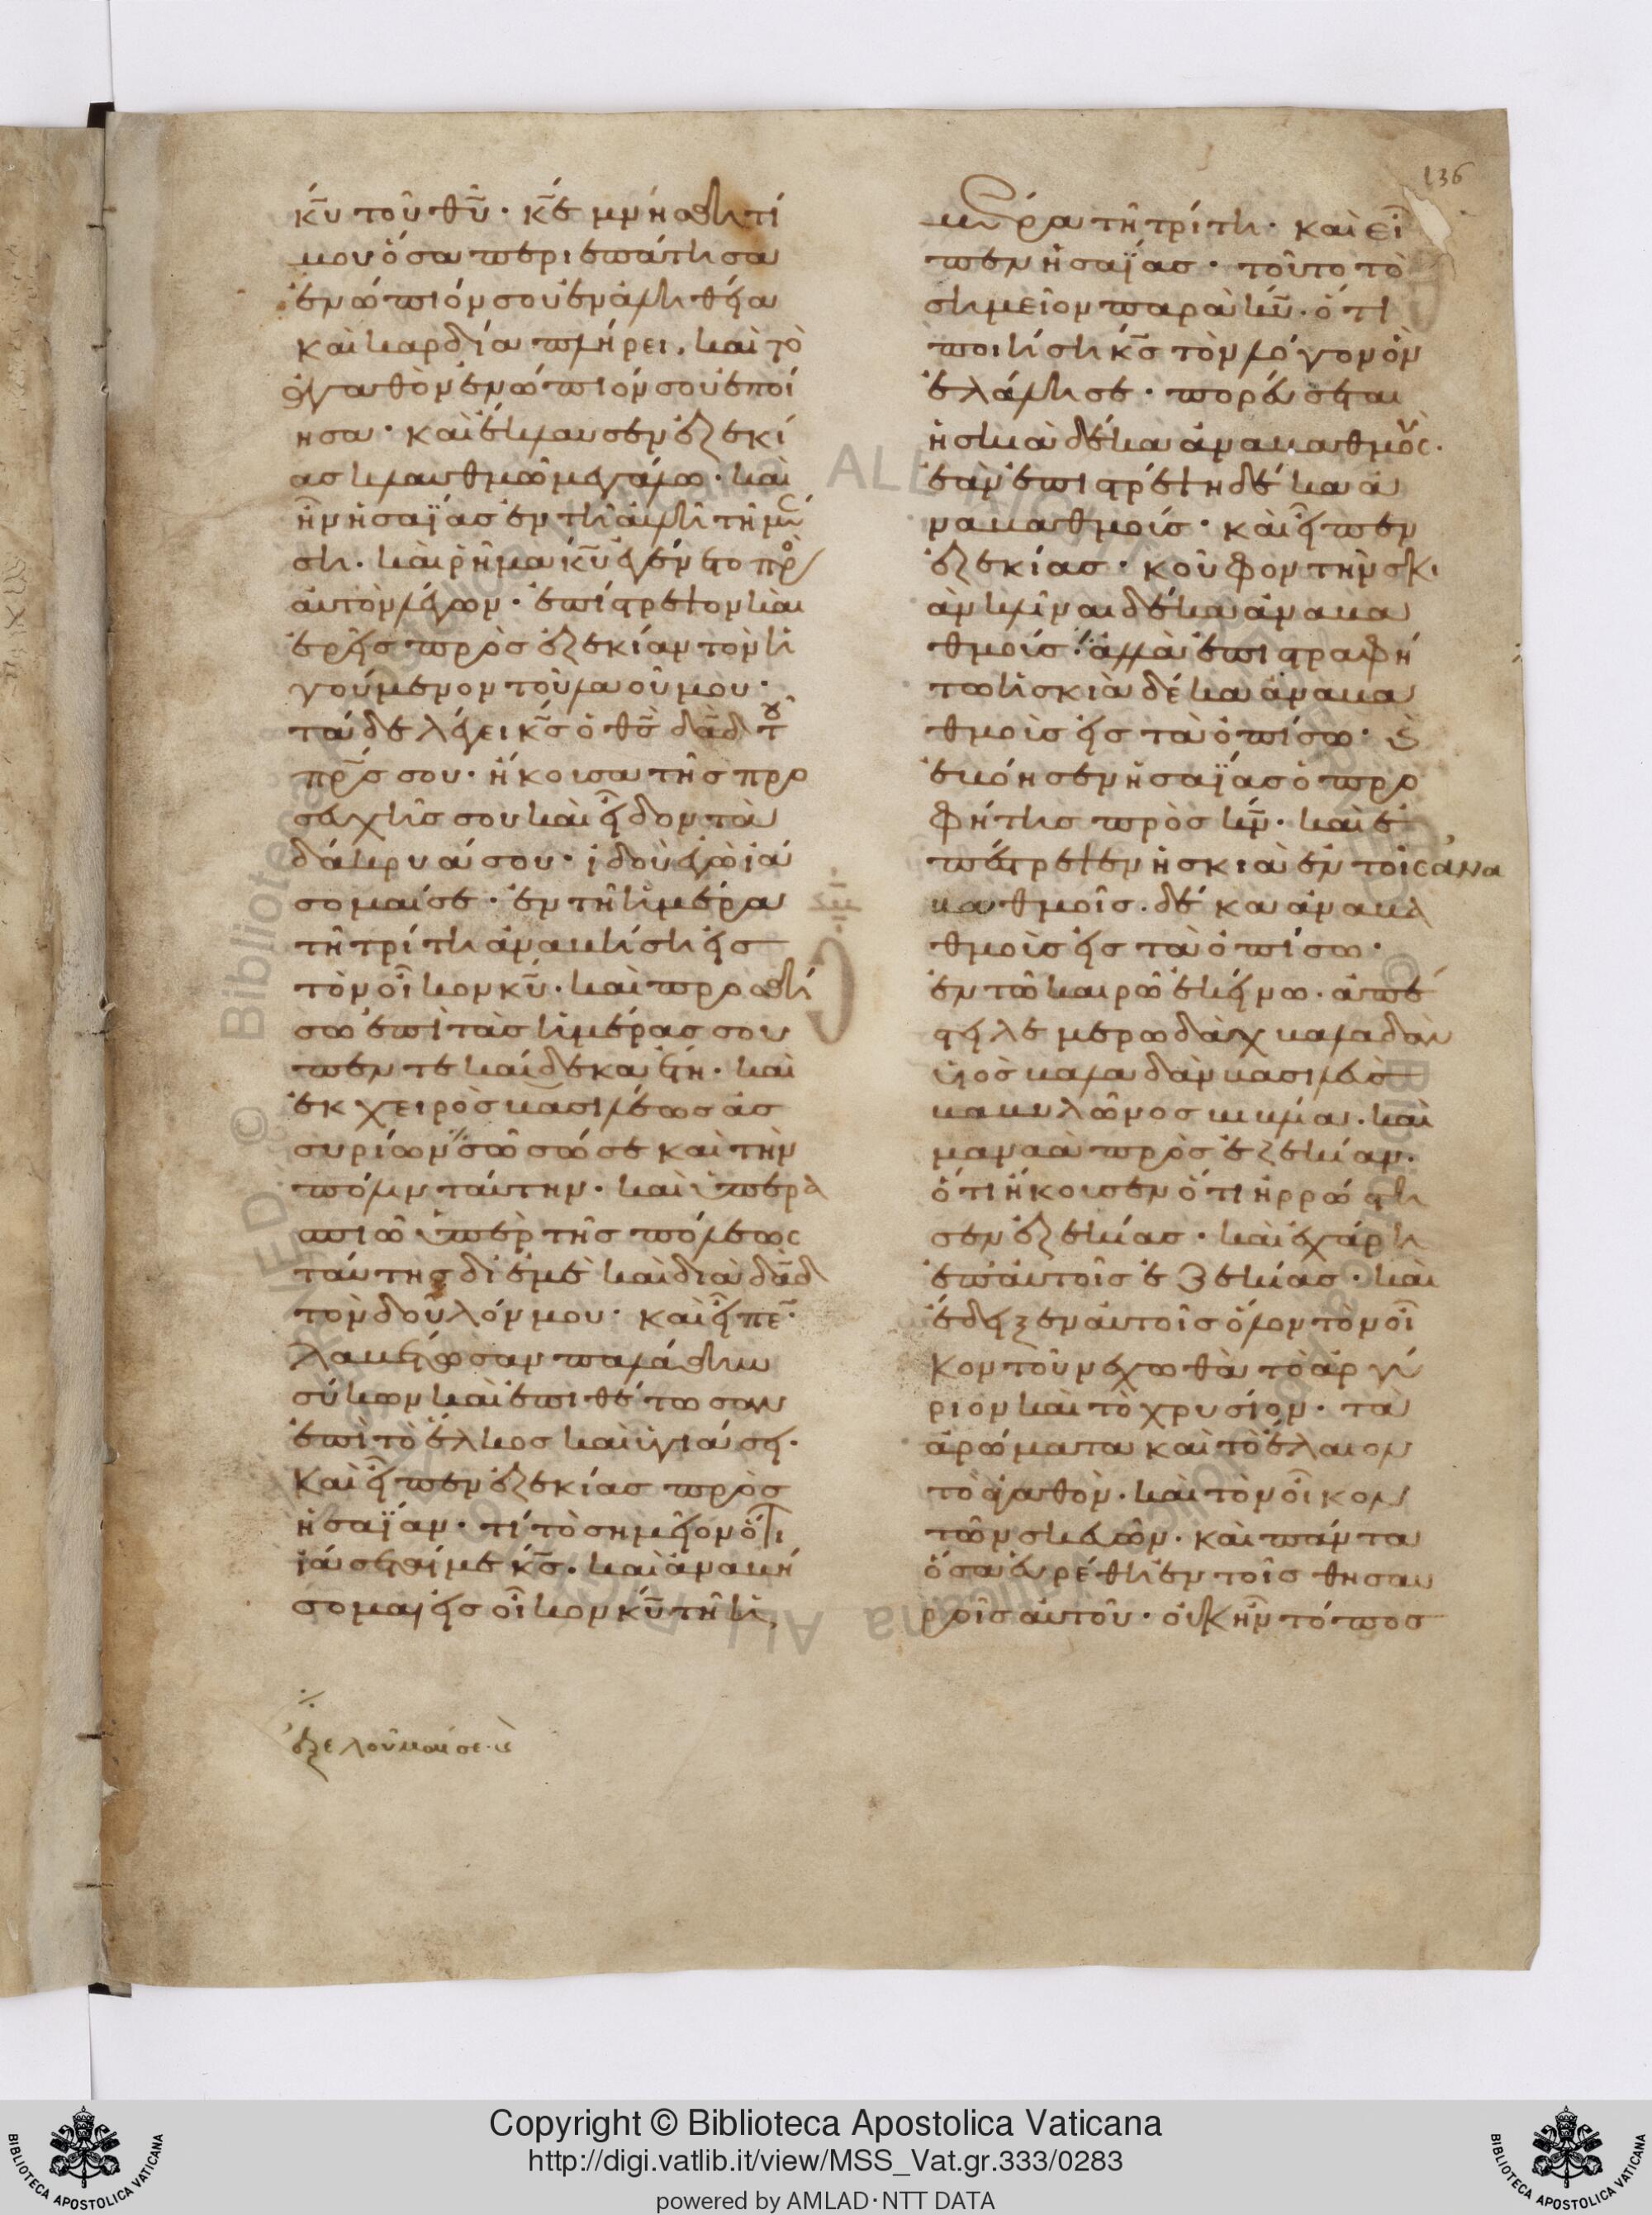 136
κ̅υ τοῦ θ̅υ· κ̅ε μνήσθητί
μου ὅσα περιεπάτησα
ἐνώπιόν σου ἐν ἀληθεία
καὶ καρδία πλήρει. καὶ τὸ
ἀγαθὸν ἐνώπιόν σου ἐποί
ησα· καὶ ἔκλαυσεν ἐζεκί
ας κλαυθμῶ μεγάλω· καὶ
ἦν ἡσαΐας ἐν τῆ αὐλῆ τῆ μέ
ση. καὶ ῥῆμα κ̅υ ἐγένετο πρὸς
αὐτὸν λέγων· ἐπίστρεψον καὶ
ἐρεῖς πρὸς ἐζεκίαν τὸν ἡ
γούμενον τοῦ λαοῦ μου·
τάδε λέγει κ̅ς ὁ θ̅ς δα̅δ τοῦ
π̅ρ̅ς σου· ἤκουσα τῆς προ
σευχῆς σου καὶ εἶδον τὰ
δάκρυά σου· ἰδοὺ ἐγὼ ἰά
σομαί σε· ἐν τῆ ἡμέρα
τῆ τρίτη ἀναβήση εἰς
τὸν οἶκον κ̅υ. καὶ προσθή
σω ἐπὶ τὰς ἡμέρας σου
πεντεκαίδεκα ἔτη· καὶ
ἐκ χειρὸς βασιλέως ἀσ
συρίων ⁒ σῶ σώσε καὶ τὴν
πόλιν ταύτην· καὶ ὑπερα
σπιῶ ὑπὲρ τῆς πόλεως
ταύτης δι' ἐμὲ καὶ διὰ δα̅δ
τὸν δοῦλόν μου· καὶ εἶπε·
λαβέτωσαν παλάθην
σύκων καὶ ἐπιθέτωσαν
ἐπὶ τὸ ἕλκος καὶ ὑγιάσει·
Καὶ εἶπεν ἐζεκίας πρὸς
ἡσαΐαν· τί τὸ σημεῖον ὅτι
ἰάσεταί με κ̅ς. καὶ ἀναβή
σομαι εἰς οἶκον κ̅υ τῆ ἡ
⁒
ἐξελοῦμαί σε· κ̀
μέρα τῆ τρίτη· καὶ εἶ
πεν ἡσαΐας· τοῦτο τὸ
σημεῖον παρὰ κ̅υ· ὅτι
ποιήση κ̅ς τὸν λόγον ὃν
ἐλάλησε· πορεύσεται
ἡ σκιὰ δέκα ἀναβαθμούς·
ἐὰν ἐπιστρέψη δέκα ἀ
ναβαθμοίς· καὶ εἶπεν
ἐζεκίας· κοῦφον τὴν σκι
ὰν κλῖναι δέκα ἀναβα
θμοίς· ἀλλὰ ἐπιστραφή
τω ἡ σκιὰ δέκα ἀναβα
θμοὶς εἰς τὰ ὀπίσω· κ̀
ἐβόησεν ἡσαΐας ὁ προ
φήτης πρὸς κ̅ν· καὶ ἐ
πέστρεψεν ἡ σκιὰ ἐν τοῖς ἀνα
βαθμοῖς. δέκα ἀναβα
θμοὶς εἰς τὰ ὀπίσω·
ἐν τῶ καιρῶ ἐκείνω. ἀπέ
στειλε μερωδὰχ βαλαδὰν
υἱὸς βαλαδὰν βασιλεὺς
βαβυλῶνος βιβλία. καὶ
μαναὰ πρὸς ἐζεκίαν.
ὅτι ἤκουσεν ὅτι ἠρρώστη
σεν ἐζεκίας· καὶ ἐχάρη
ἐπ' αὐτοῖς ἐζεκίας· καὶ
ἔδειξεν αὐτοῖς ὅλον τὸν οἶ
κον τοῦ νεχωθὰ τὸ ἀργύ
ριον καὶ τὸ χρυσίον· τὰ
ἀρώματα καὶ τὸ ἔλαιον
τὸ ἀγαθόν. καὶ τὸν οἶκον
τῶν σκευῶν. καὶ πάντα
ὅσα εὑρέθη ἐν τοῖς θησαυ
ροῖς αὐτοῦ· οὐκ ἦν τόπος
Copyright © Biblioteca Apostolica Vaticana
http://digi.vatlib.it/view/MSS_Vat.gr.333/0283
powered by AMLAD·NTT DATA
BIBLIOTECA APOSTOLICA VATICANA
BIBLIOTECA APOSTOLICA VATICANA